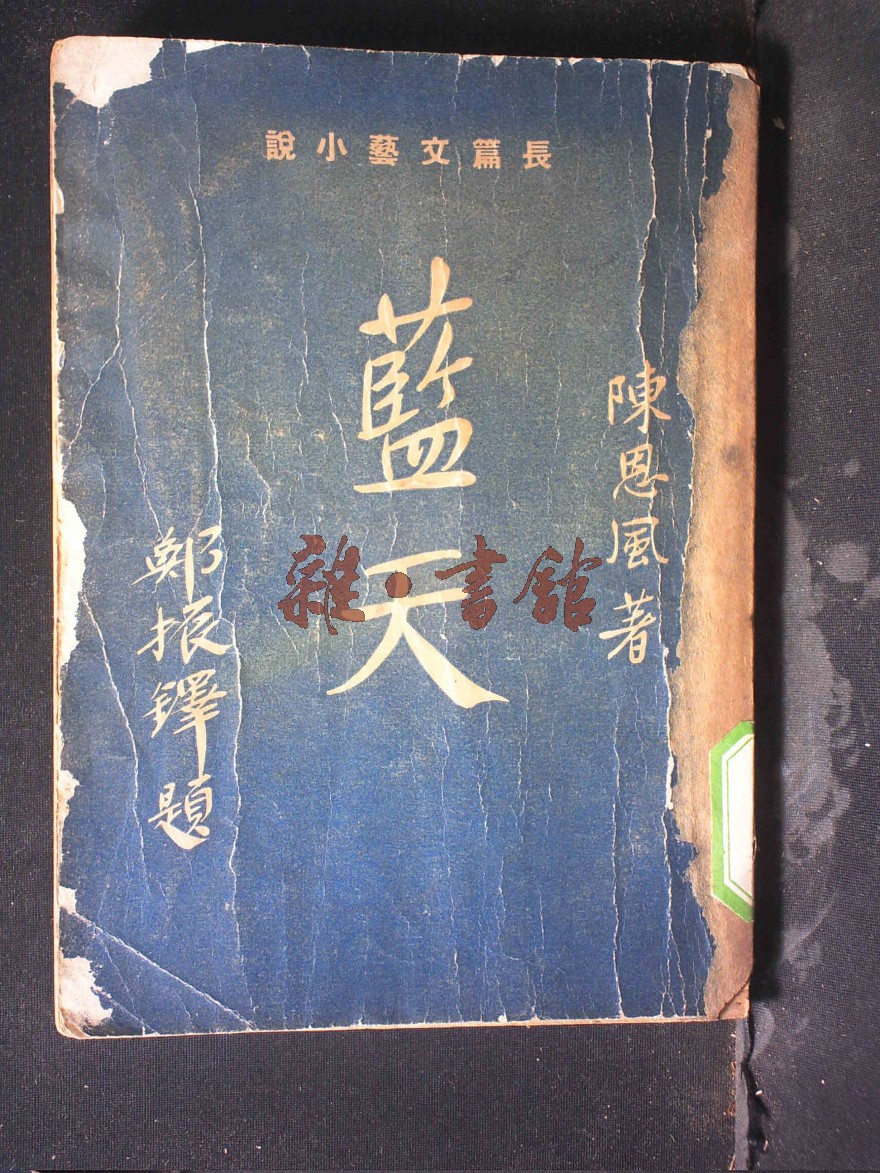 長篇文藝小說
陳恩風著
藍天
鄭振鐸題
雜·書館